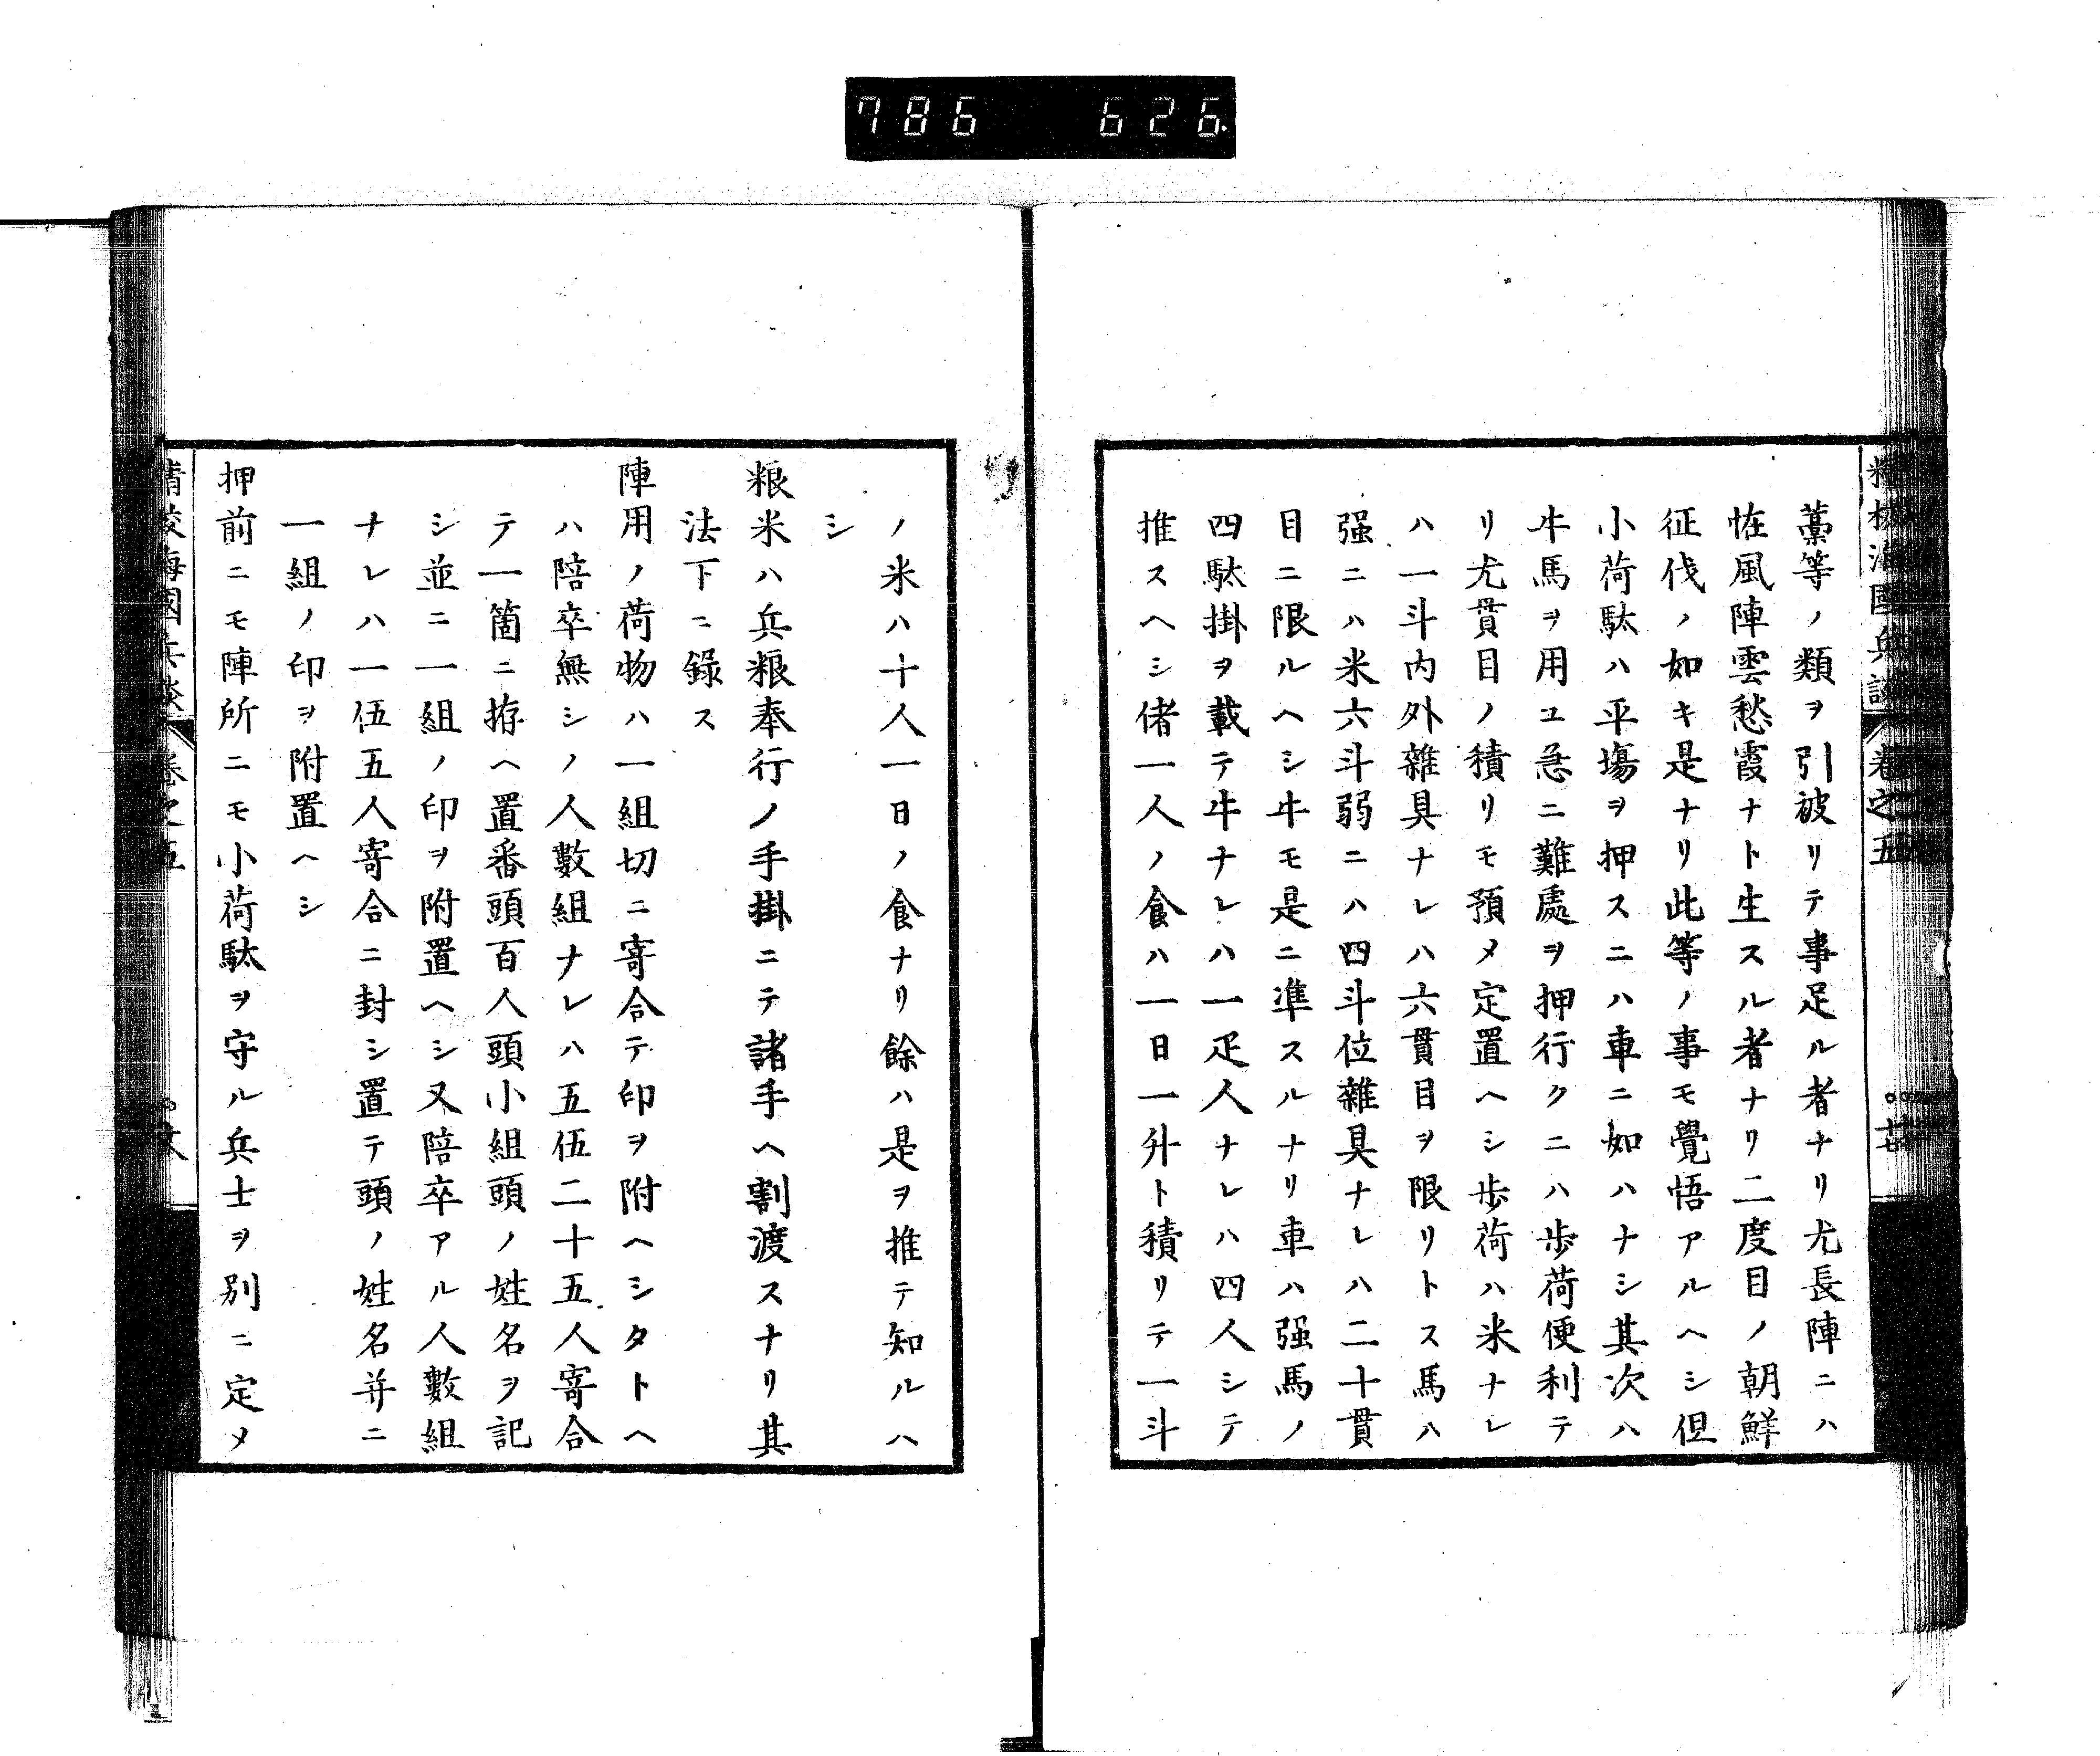 786 626
精校海國兵談 卷之五
藁等ノ類ヲ引被リテ事足ル者ナリ尤長陣ニハ
恠風陣雲愁霞ナト生スル者ナリ二度目ノ朝鮮
征伐ノ如キ是ナリ此等ノ事モ覺悟アルヘシ但
小荷駄ハ平塲ヲ押スニハ車ニ如ハナシ其次ハ
牛馬ヲ用ユ急ニ難處ヲ押行クニハ歩荷便利テ
リ尤貫目ノ積リモ預メ定置ヘシ歩荷ハ米ナレ
ハ一斗内外雜具ナレハ六貫目ヲ限リトス馬ハ
强ニハ米六斗弱ニハ四斗位雜具ナレハ二十貫
目ニ限ルヘシ牛モ是ニ凖スルナリ車ハ强馬ノ
四駄掛ヲ載テ牛ナレハ一疋人ナレハ四人シテ
推スヘシ偖一人ノ食ハ一日一升ト積リテ一斗
ノ米ハ十人一日ノ食ナリ餘ハ是ヲ推テ知ルハ
シ
粮米ハ兵粮奉行ノ手掛ニテ諸手ヘ割渡スナリ其
法下ニ錄ス
陣用ノ荷物ハ一組切ニ寄合テ印ヲ附ヘシタトヘ
ハ陪卒無シノ人數組ナレハ五伍二十五人寄合
テ一箇ニ拵ヘ置番頭百人頭小組頭ノ姓名ヲ記
シ並ニ一組ノ印ヲ附置ヘシ又陪卒アル人數組
ナレハ一伍五人寄合ニ封シ置テ頭ノ姓名并ニ
一組ノ印ヲ附置ヘシ
押前ニモ陣所ニモ小荷駄ヲ守ル兵士ヲ別ニ定メ
精校海國兵談 卷之五